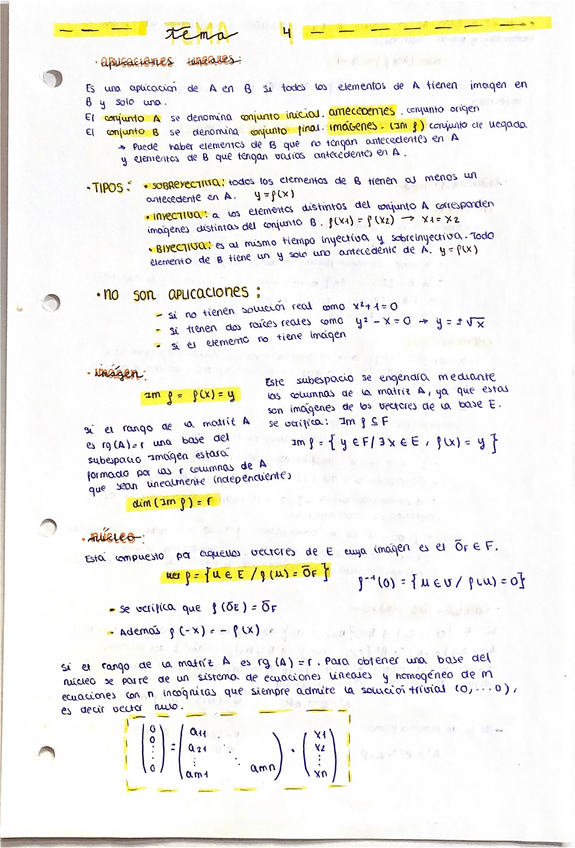 tema 4
· aplicaciones lineales:
Es una aplicación de A en B si todos los elementos de A tienen imagen en
B y solo uno.
El conjunto A se denomina conjunto inicial. antecedentes. conjunto origen
El conjunto B se denomina conjunto final. imágenes. (Im f) conjunto de llegada
→ Puede haber elementos de B que no tengan antecedentes en A
y elementos de B que tengan varios antecedentes en A.
· TIPOS: • SOBREYECTIVA: todos los elementos de B tienen al menos un
antecedente en A. y = f(x)
• INYECTIVA: a los elementos distintos del conjunto A corresponden
imágenes distintas del conjunto B. f(x1) = f(x2) → x1 = x2
• BIYECTIVA: es al mismo tiempo inyectiva y sobreinyectiva. Todo
elemento de B tiene un y solo uno antecedente de A. y = f(x)
· NO SON APLICACIONES:
- si no tienen solución real como x²+1=0
- si tienen dos raíces reales como y²-x=0 → y = ±√x
- si el elemento no tiene imagen
· imágen:
Im f = f(x) = y
Este subespacio se engendra mediante
las columnas de la matriz A, ya que estas
son imágenes de los vectores de la base E.
se verifica: Im f ⊆ F
Im f = { y ∈ F / ∃ x ∈ E, f(x) = y }
si el rango de la matriz A
es rg(A)=r una base del
subespacio imagen estará
formado por las r columnas de A
que sean linealmente independientes
dim (Im f) = r
· núcleo:
Está compuesto por aquellos vectores de E cuya imagen es el ŌF ∈ F.
ker f = { u ∈ E / f(u) = ŌF } f⁻¹(0) = { u ∈ U / f(u) = 0 }
- se verifica que f(ŌE) = ŌF
- Además f(-x) = - f(x)
si el rango de la matriz A es rg(A) = r. Para obtener una base del
núcleo se parte de un sistema de ecuaciones lineales y homogéneo de m
ecuaciones con n incógnitas que siempre admite la solución trivial (0,...0),
es decir vector nulo.
(0 0 ⋮ 0) = (a11 a21 ⋮ am1 ⋱ amn) · (x1 x2 ⋮ xn)